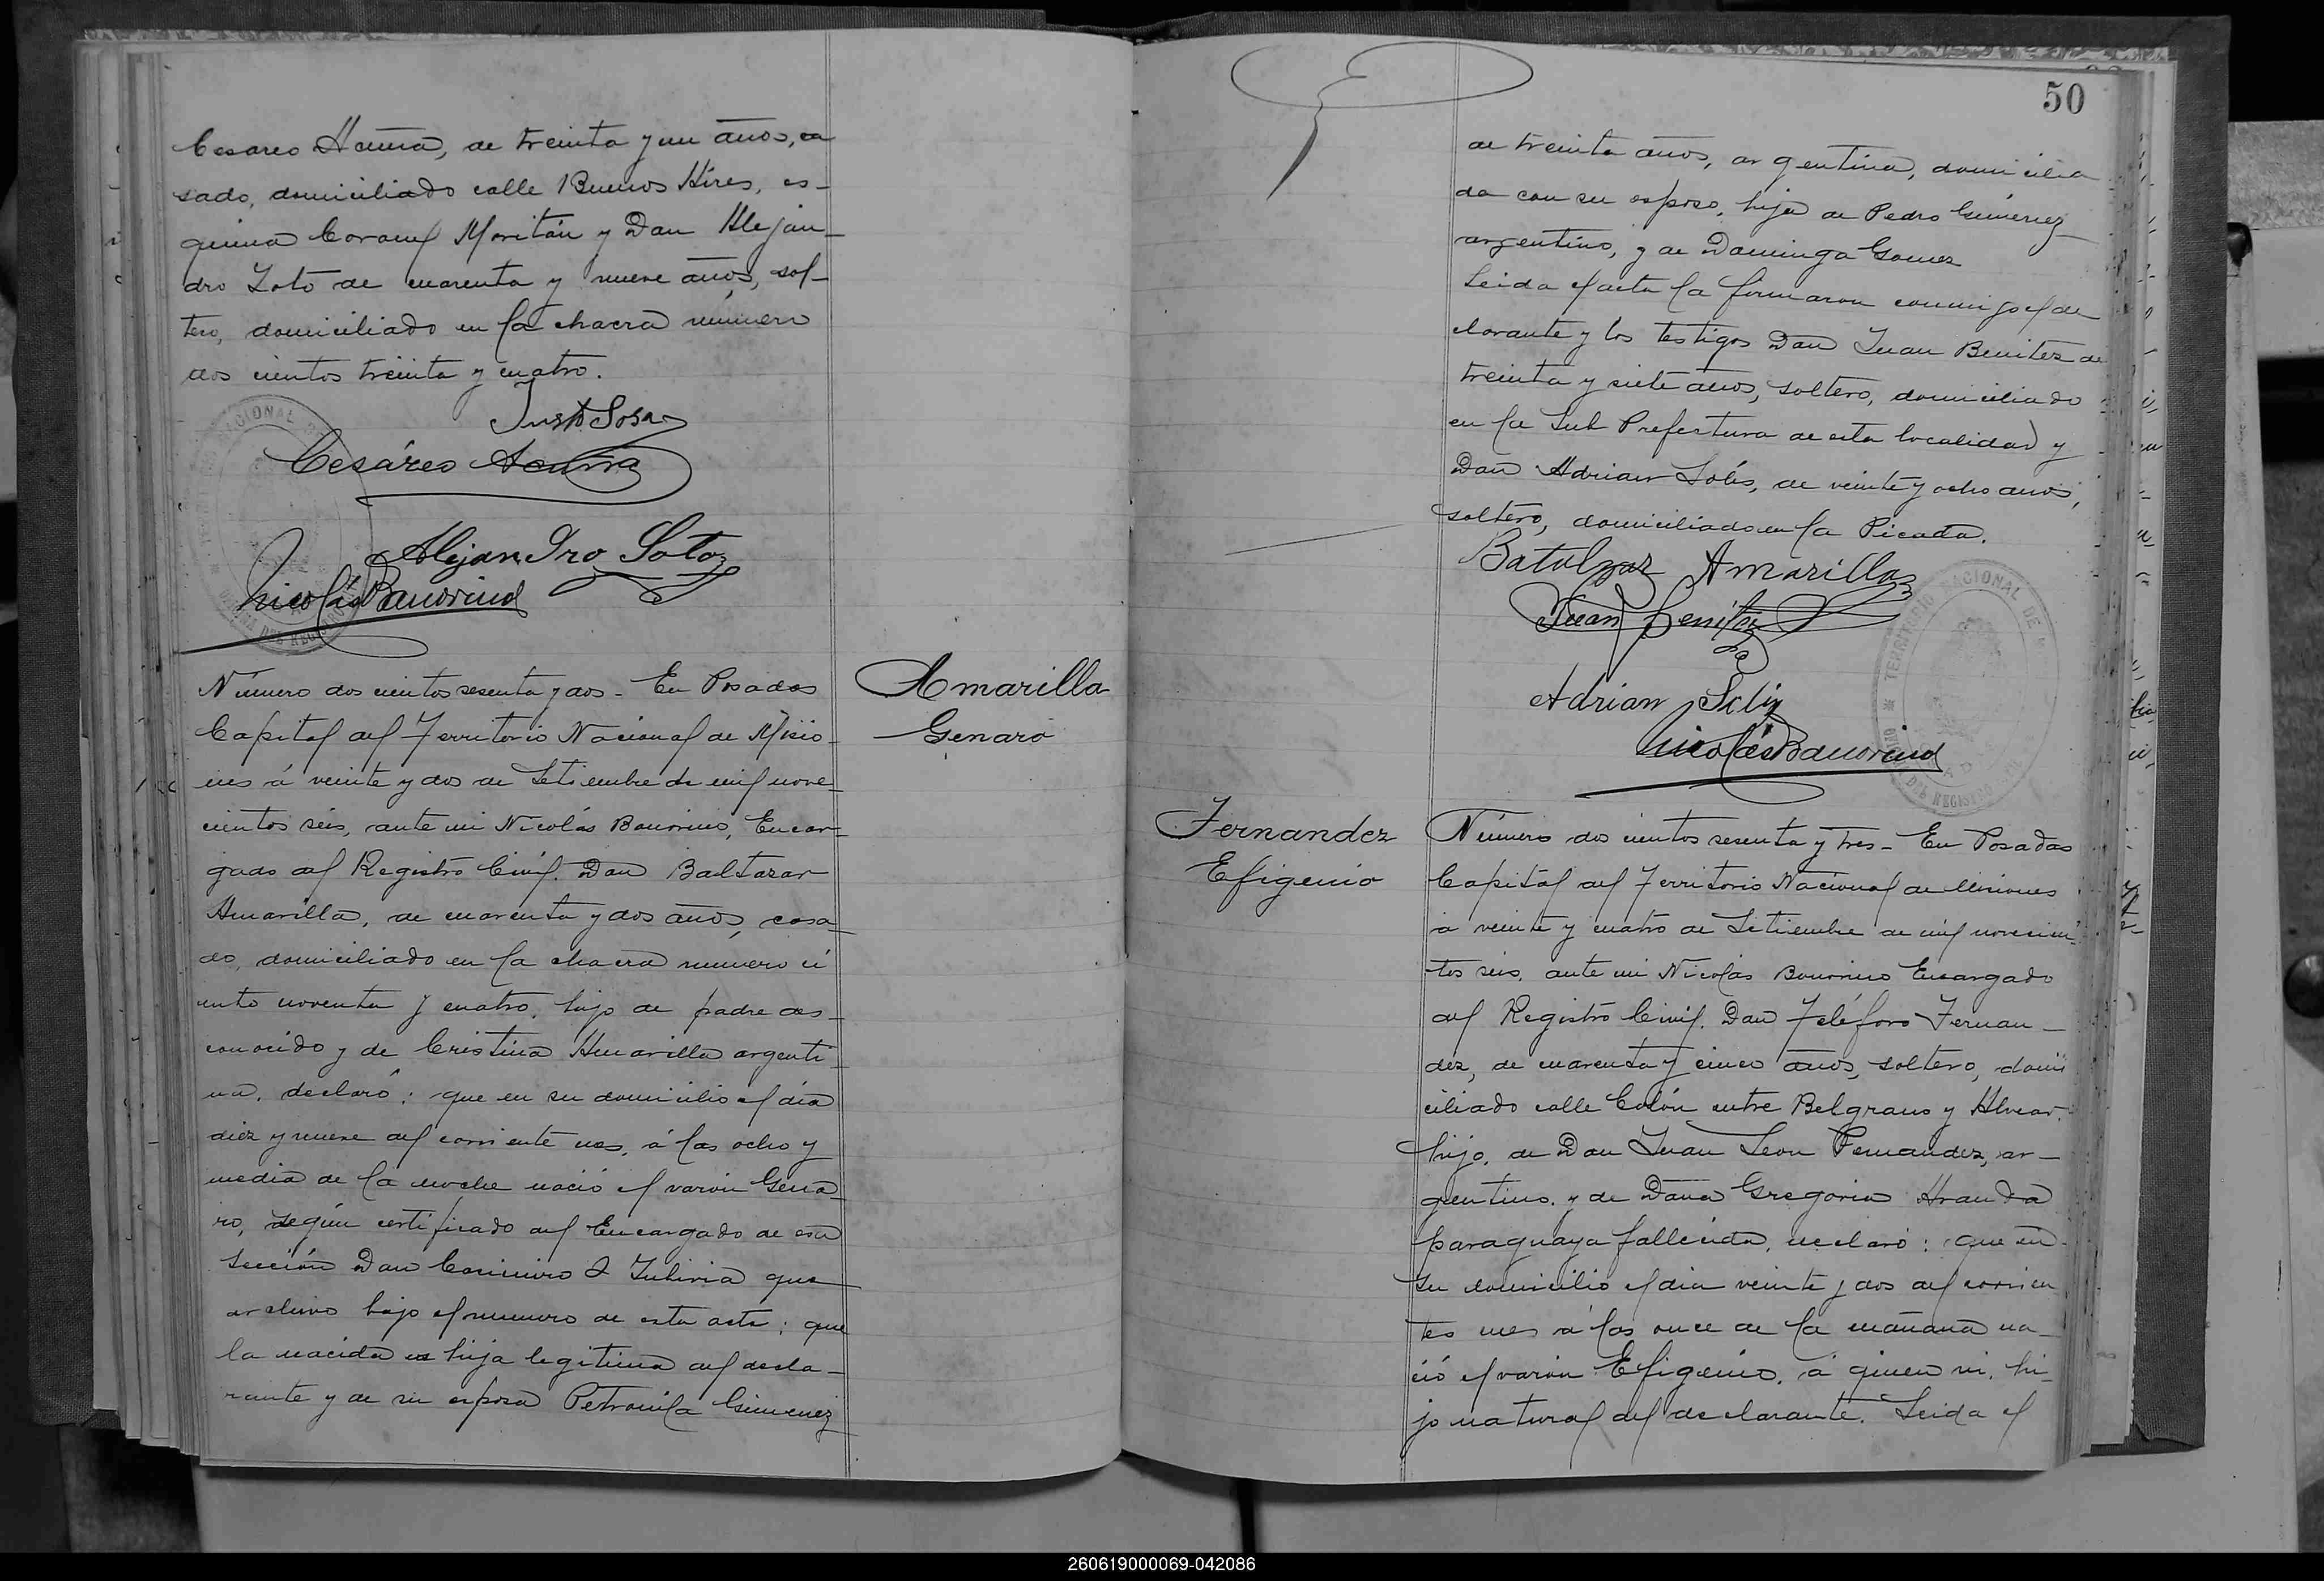 Cesareo Acuña, de treinta y un años, ca
sado, domiciliado calle Buenos Aires, es-
quina Coronel Moritán y Don Alejan-
dro Soto de cuarenta y nueve años, sol-
tero, domiciliado en la chacra número
dos cientos treinta y cuatro.
Justo Sosa
Cesáreo Acuña
Alejandro Soto
Nicolás Bauorino
Número dos cientos sesenta y dos - En Posadas
Capital del Territorio Nacional de Misio-
nes á veinte y dos de Setiembre de mil nove-
cientos seis, ante mi Nicolás Bouorino, Encar-
gado del Registro Civil. Don Baltazar
Amarilla, de cuarenta y dos años, casa-
do, domiciliado en la chacra numero ci
ento noventa y cuatro, hijo de padre des-
conocido y de Cristina Amarilla argenti-
na, declaró: que en su domicilio el día
diez y nueve del corriente mes, á las ocho y
media de la noche nació el varón Gena-
ro, según certificado del Encargado de esa
Sección Don Casimiro que
archivo bajo el numero de esta acta; que
la nacida es hija legitima del decla-
rante y de su esposa Petronila Gimenez
Amarilla
Genaro
50
de treinta años, argentina, domicilia
da con su esposo, hija de Pedro Gimenez
argentino, y de Dominga Gomez
Leida el acta la firmaron conmigo el de
clarante y los testigos Don Juan Benitez de
treinta y siete años, soltero, domiciliado
en la Sub Prefectura de esta localidad y
Don Adrian Solis, de veinte y ocho años,
soltero, domiciliado en la Picada.
Batalzar Amarilla
Juan Benitez
Adrian Solis
Nicolás Bauorino
TERRITORIO NACIONAL DE
DEL REGISTRO CIVIL
Fernandez
Efigenio
Número dos cientos sesenta y tres - En Posadas
Capital del Territorio Nacional de Misiones
á veinte y cuatro de Setiembre de mil novecien-
tos seis, ante mi Nicolás Bouorino Encargado
del Registro Civil. Don Teléforo Fernan-
dez, de cuarenta y cinco años, soltero, domi
ciliado calle Colón entre Belgrano y Alvear,
hijo, de Don Juan Leon Fernandez, ar-
gentino, y de Dona Gregoria Aranda
paraguaya fallecida, declaró: que en
su domicilio el dia veinte y dos del corrien
tes mes á las once de la mañana na-
ció el varón Efigenio, á quien vi, hi-
jo natural del declarante. Leida el
260619000069-042086